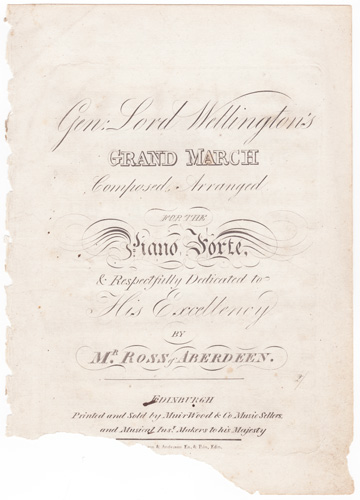 Gen: Lord Wellington's
GRAND MARCH
Composed, Arranged
FOR THE
Piano Forte,
& Respectfully Dedicated to
His Excellency
BY
Mr. ROSS of ABERDEEN.
EDINBURGH
Printed and Sold by Muir Wood & Co. Music Sellers,
and Musical Inst. Makers to his Majesty